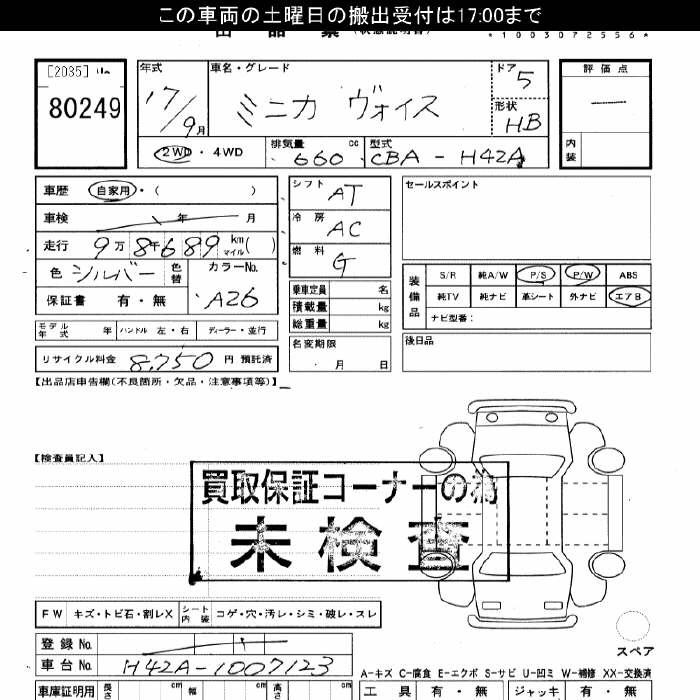 この車両の土曜日の搬出受付は17:00まで
*1003072556*
[2035]
80249
年式 17/9月
車名・グレード ミニカ ヴォイス
ドア 5
形状 HB
評価点 —
内装
2WD・4WD
排気量 660 cc
型式 CBA-H42A
車歴 自家用・( )
車検 年 月
走行 9万8千689 km マイル( )
色 シルバー 色替
カラーNo. A26
保証書 有・無
シフト AT
冷房 AC
燃料 G
乗車定員 名
積載量 kg
総重量 kg
セールスポイント
装備品
S/R 純A/W P/S P/W ABS
純TV 純ナビ 革シート 外ナビ エアB
ナビ型番:
モデル年式 年 ハンドル 左・右 ディーラー・並行
名変期限 月 日
後日品
リサイクル料金 8,750 円 預託済
【出品店申告欄(不良箇所・欠品・注意事項等)】
【検査員記入】
買取保証コーナーの為
未検査
FW キズ・トビ石・割レX シート内装 コゲ・穴・汚レ・シミ・破レ・スレ
スペア
登録No.
車台No. H42A-1007123
A-キズ C-腐食 E-エクボ S-サビ U-凹ミ W-補修 XX-交換済
車庫証明用 長さ cm 幅 cm 高さ cm
工具 有・無 ジャッキ 有・無